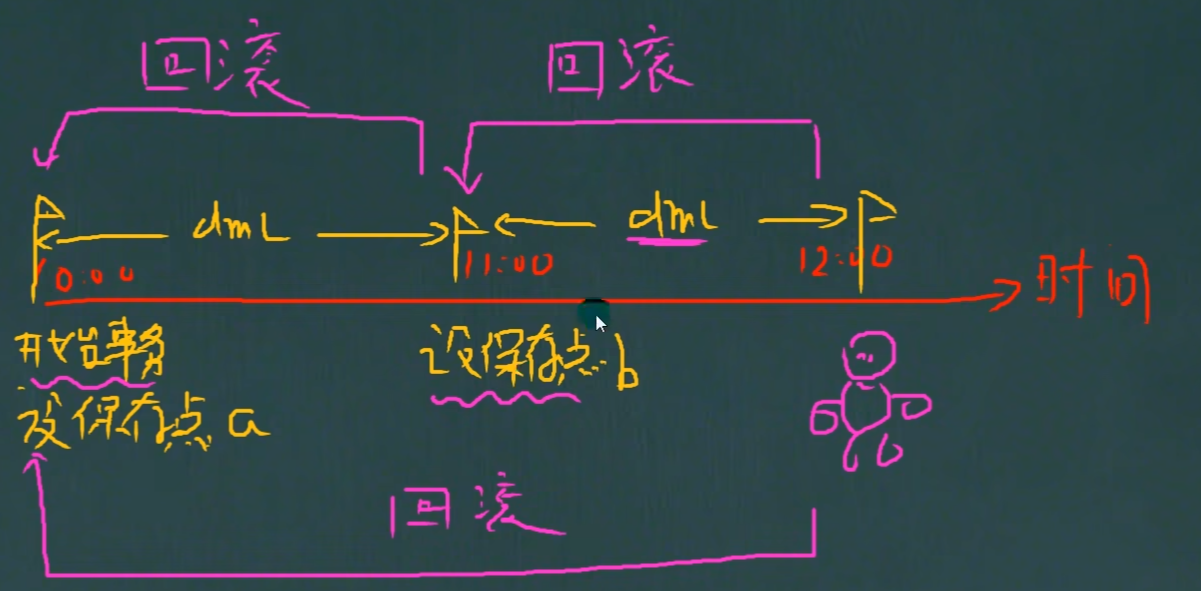 回滚 回滚
dml dml
10:00 11:00 12:00
时间
开始事务 设保存点 b
设保存点 a
回滚